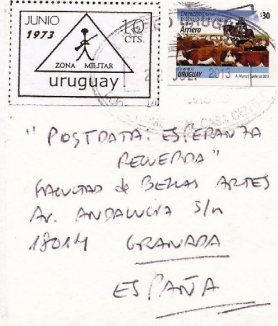 JUNIO
1973
10
CTS.
ZONA MILITAR
uruguay
Arriero
$30
URUGUAY
2013
"POSTDATA: ESPERANZA
RECUERDA"
FACULTAD de BELLAS ARTES
AV. ANDALUCÍA S/n
18014 GRANADA
ESPAÑA